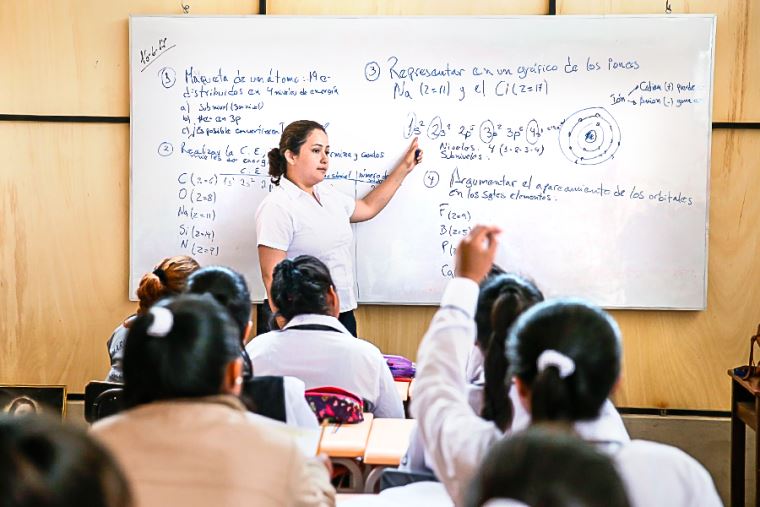 ① Maqueta de un átomo: 19 e-
distribuidos en 4 niveles de energía
a) Subnivel
b) en 3p
c) ¿Es posible convertirlo
② Realizar la C.E.
niveles de energía
C.E.
C (Z=6) 1s² 2s² 2
O (Z=8)
Na (Z=11)
Si (Z=14)
N (Z=7)
③ Representar en un gráfico de los iones
Na (Z=11) y el Ci (Z=17)
Catión (+) pierde
Ión
Anión (-) gana
1s² 2s² 2p⁶ 3s² 3p⁶ 4s¹
Niveles: 4 (1-2-3-4)
Subniveles:
④ Argumentar el apareamiento de los orbitales
en los sgtes elementos.
F (Z=9)
B (Z=5)
P (Z=
Ca